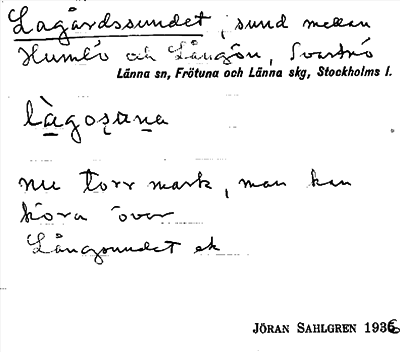 Lagårdssundet, sund mellan
Humlö och Långön, Svartnö
Länna sn, Frötuna och Länna skg, Stockholms l.
làgosuna
nu torr mark, man kan
köra över
Långsundet ek
JÖRAN SAHLGREN 1936